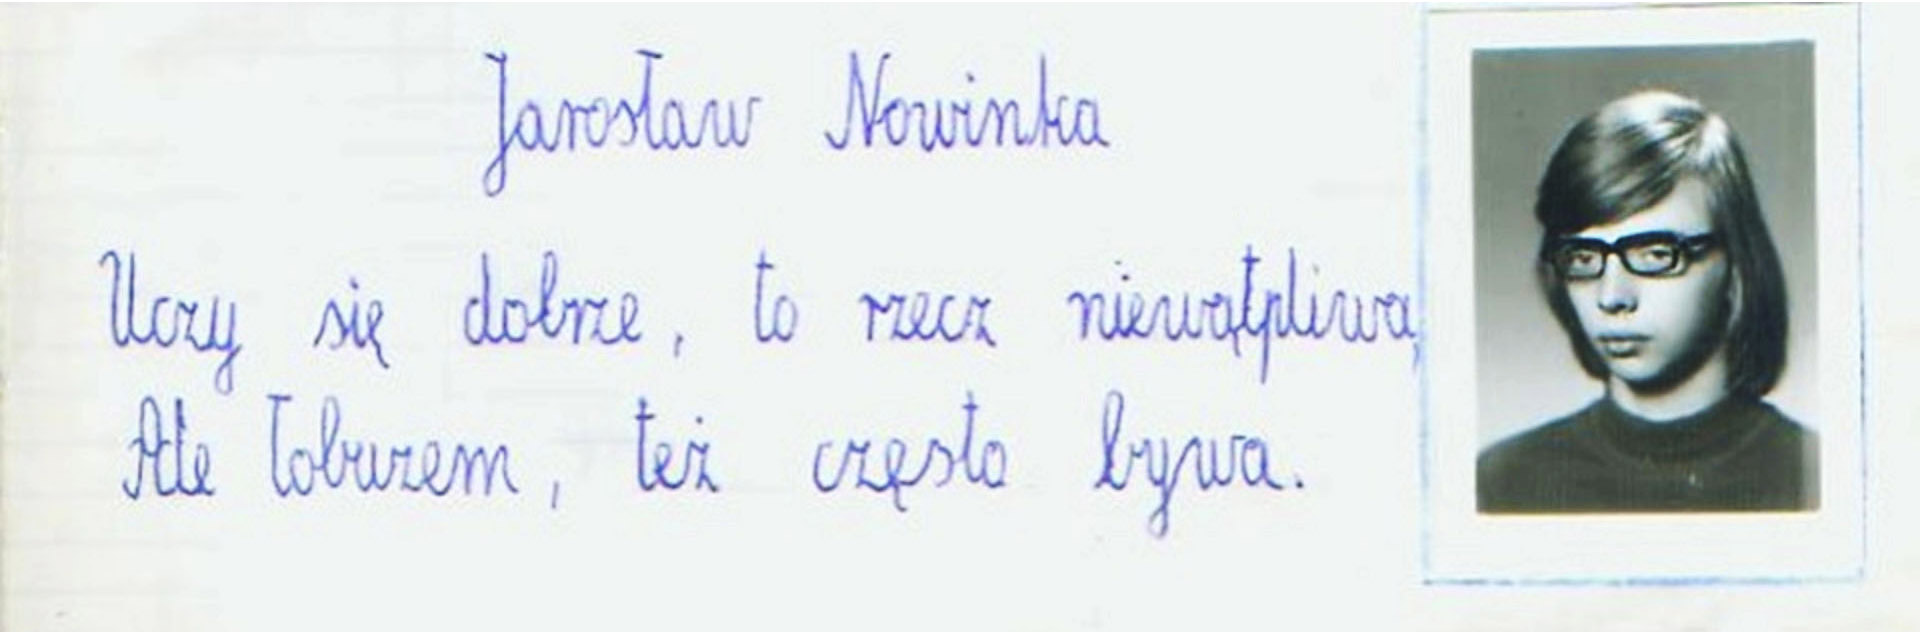 Jarosław Nowinka
Uczy się dobrze, to rzecz niewątpliwa,
Ale łobuzem, też często bywa.